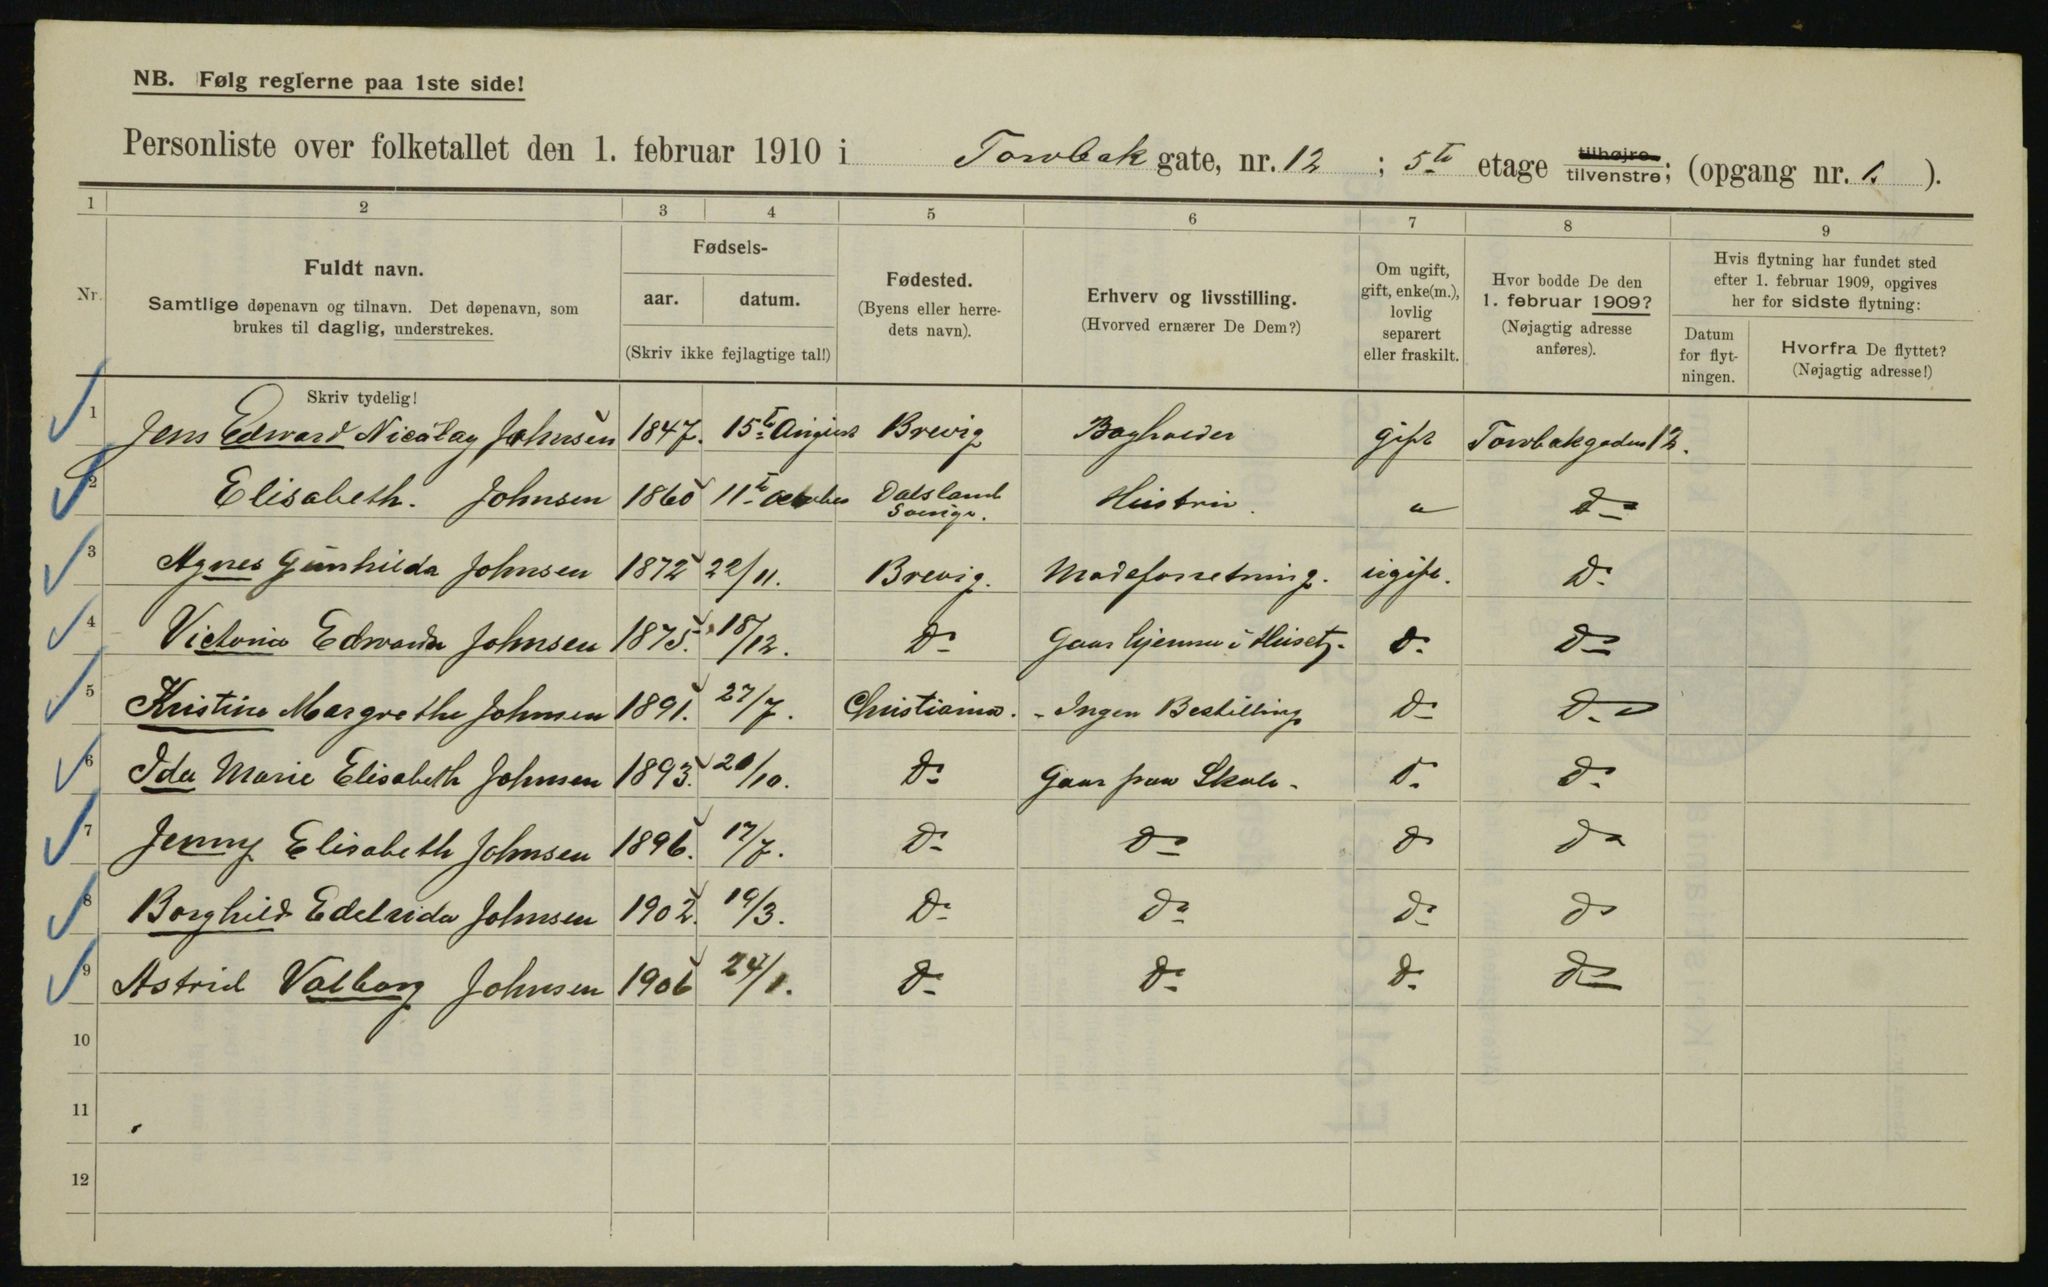 NB. Følg reglerne paa 1ste side!
Personliste over folketallet den 1. februar 1910 i Torvbak gate, nr. 12 ; 5te etage tilhøjre tilvenstre; (opgang nr. 1. ).
1 2 3 4 5 6 7 8 9
Nr.
Fuldt navn.
Samtlige døpenavn og tilnavn. Det døpenavn, som
brukes til daglig, understrekes.
Skriv tydelig!
Fødsels-
aar. datum.
(Skriv ikke fejlagtige tal!)
Fødested.
(Byens eller herre-
dets navn).
Erhverv og livsstilling.
(Hvorved ernærer De Dem?)
Om ugift,
gift, enke(m.),
lovlig
separert
eller fraskilt.
Hvor bodde De den
1. februar 1909?
(Nøjagtig adresse
anføres).
Hvis flytning har fundet sted
efter 1. februar 1909, opgives
her for sidste flytning:
Datum
for flyt-
ningen.
Hvorfra De flyttet?
(Nøjagtig adresse!)
1 Jens Edward Nicolay Johnsen 1847. 15te August Brevig Bogholder gift Torvbakgaden 12.
2 Elisabeth. Johnsen 1860 11te October Dalsland Sverige. Hustru. " Do
3 Agnes Gunhilda Johnsen 1872 22/11. Brevig. Modeforretning. ugift. Do
4 Victoria Edwarda Johnsen 1875. 18/12. Do Gaar hjemme i Huset. Do Do
5 Kristine Margrethe Johnsen 1891. 27/7. Christiania. - Ingen Bestilling Do Do
6 Ida Marie Elisabeth Johnsen 1893. 20/10. Do Gaar paa Skole. Do Do
7 Jenny Elisabeth Johnsen 1896. 17/7. Do Do Do Do
8 Borghild Edelrida Johnsen 1902. 19/3. Do Do Do Do
9 Astrid Valborg Johnsen 1906 24/1. Do Do Do Do
10
11
12